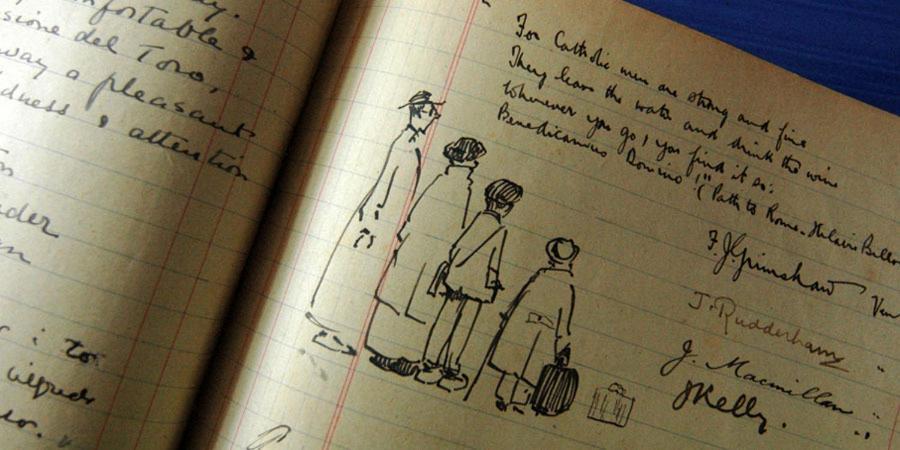 mfortable &
sione del Toro,
way a pleasant
dness & attention
to
For Catholic men are strong and fine
They leave the water and drink the wine
Wherever you go, you find it so:
Benedicamus Domino!"
(Path to Rome. Hilaire Bello
F. J. Grimshaw Ven
J. Rudderham "
J. Macmillan "
J Kelly. "